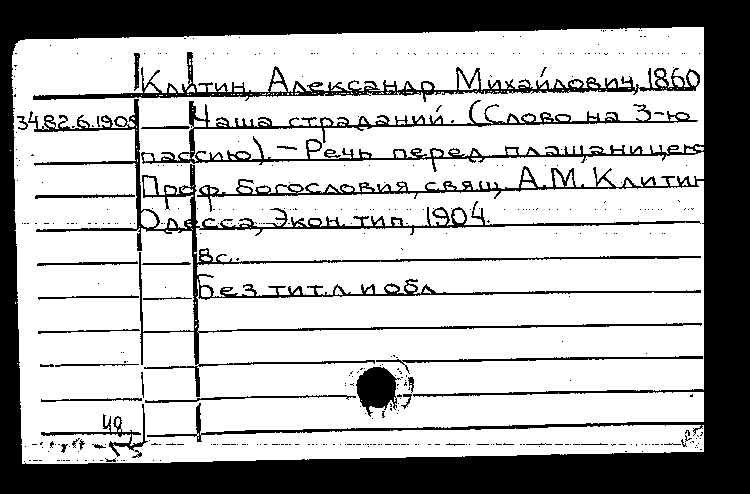 Клитин, Александр Михайлович, 1860
3482.6.1908 Чаша страданий. (Слово на 3-ю
пассию). – Речь перед плащаницею
Проф. богословия, свящ. А.М. Клитин
Одесса, Экон. тип., 1904.
8с.
Без тит. л. и обл.
48